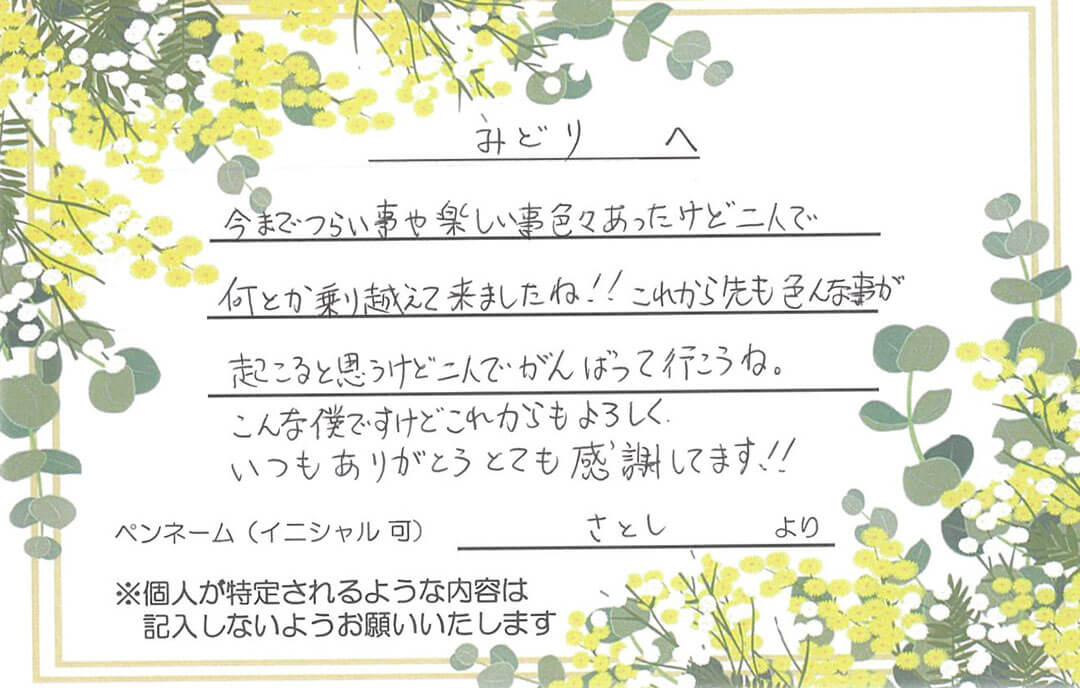 みどり へ
今までつらい事や楽しい事色々あったけど二人で
何とか乗り越えて来ましたね!! これから先も色んな事が
起こると思うけど二人でがんばって行こうね。
こんな僕ですけどこれからもよろしく.
いつもありがとうとても感謝してます!!
ペンネーム(イニシャル 可) さとし より
※個人が特定されるような内容は
記入しないようお願いいたします